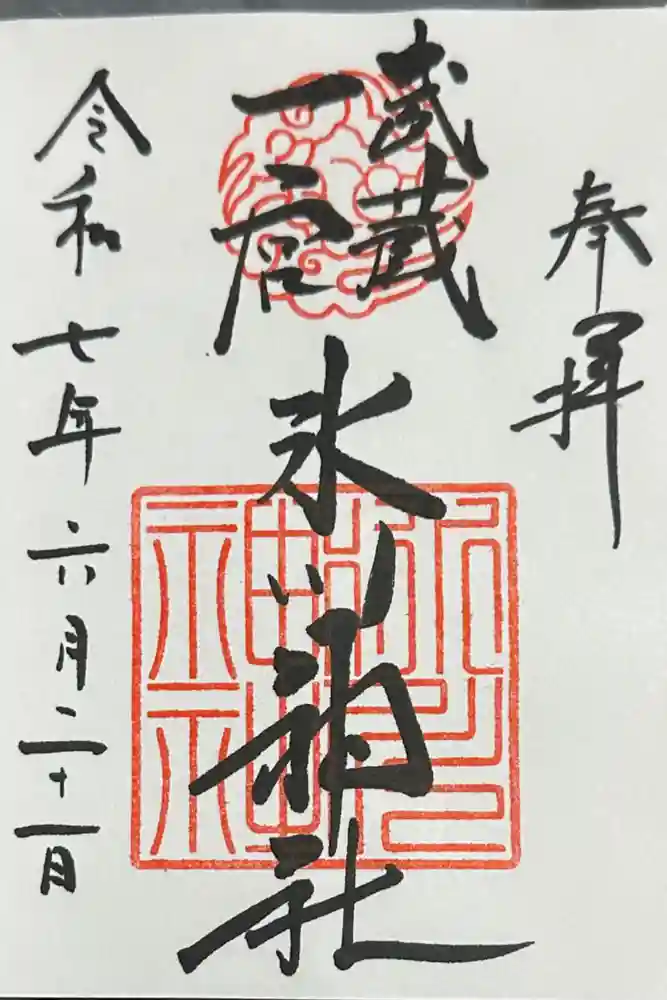 奉拝
武蔵
一宮
氷川神社
令和七年六月二十一日